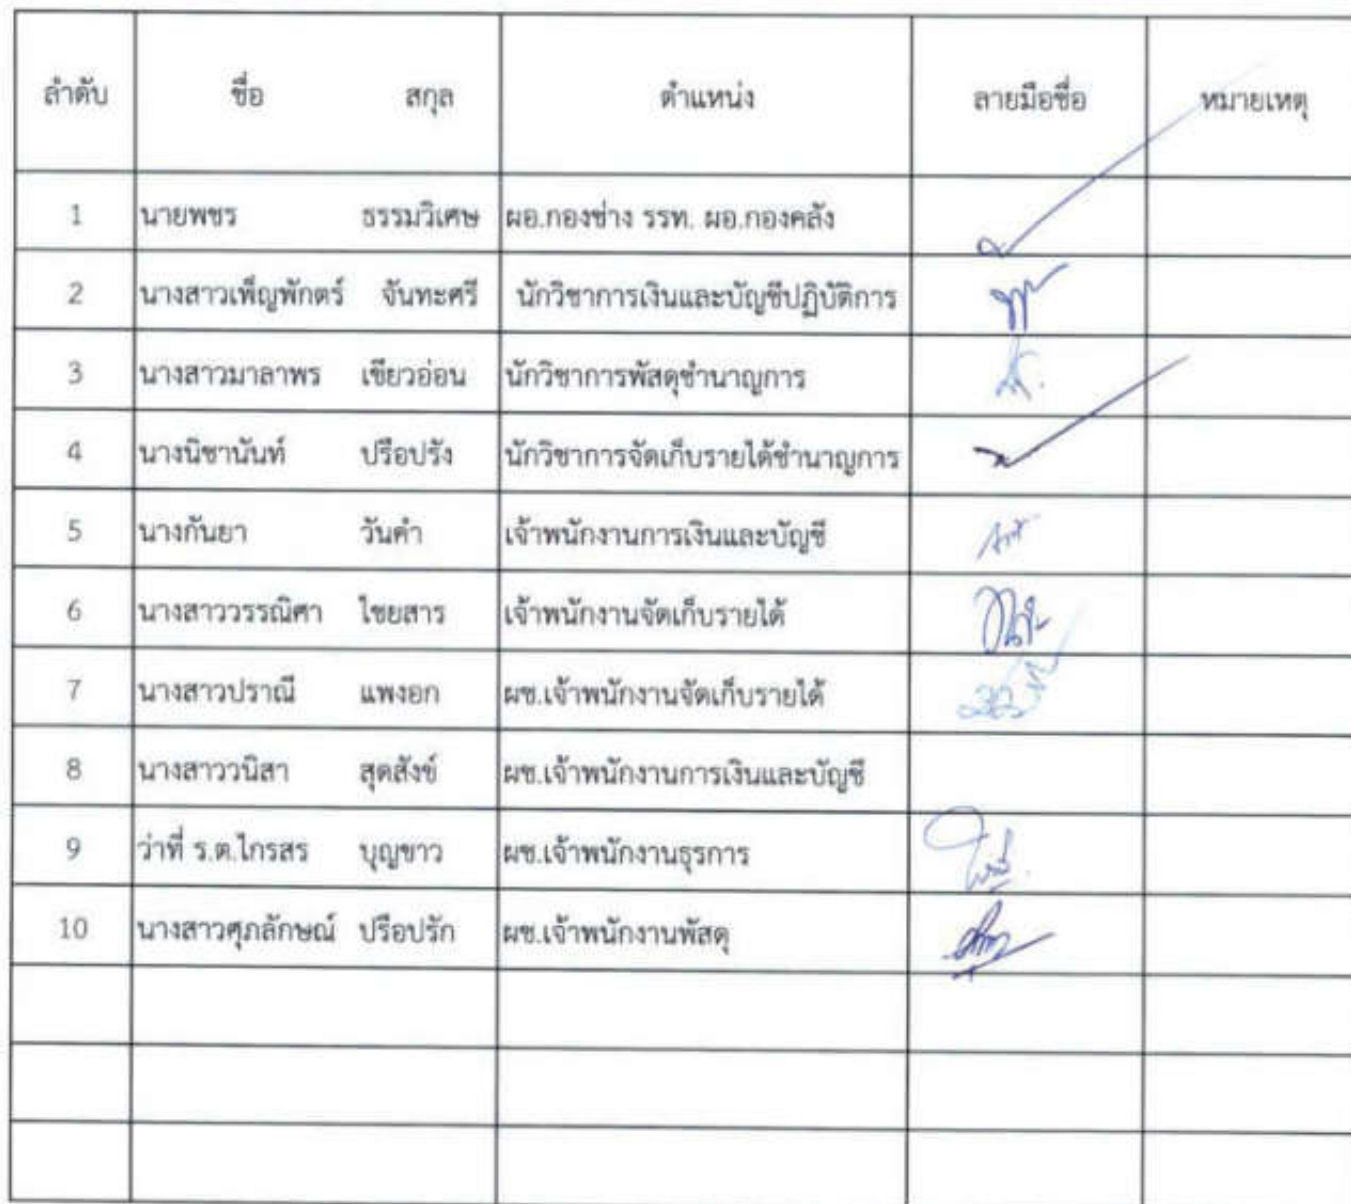 ลำดับ ชื่อ สกุล ตำแหน่ง ลายมือชื่อ หมายเหตุ
1 นายพชร ธรรมวิเศษ ผอ.กองช่าง รรท. ผอ.กองคลัง
2 นางสาวเพ็ญพักตร์ จันทะศรี นักวิชาการเงินและบัญชีปฏิบัติการ
3 นางสาวมาลาพร เขียวอ่อน นักวิชาการพัสดุชำนาญการ
4 นางนิชานันท์ ปรือปรัง นักวิชาการจัดเก็บรายได้ชำนาญการ
5 นางกันยา วันคำ เจ้าพนักงานการเงินและบัญชี
6 นางสาววรรณิศา ไชยสาร เจ้าพนักงานจัดเก็บรายได้
7 นางสาวปราณี แพงอก ผช.เจ้าพนักงานจัดเก็บรายได้
8 นางสาววนิสา สุดสังข์ ผช.เจ้าพนักงานการเงินและบัญชี
9 ว่าที่ ร.ต.ไกรสร บุญขาว ผช.เจ้าพนักงานธุรการ
10 นางสาวศุภลักษณ์ ปรือปรัก ผช.เจ้าพนักงานพัสดุ